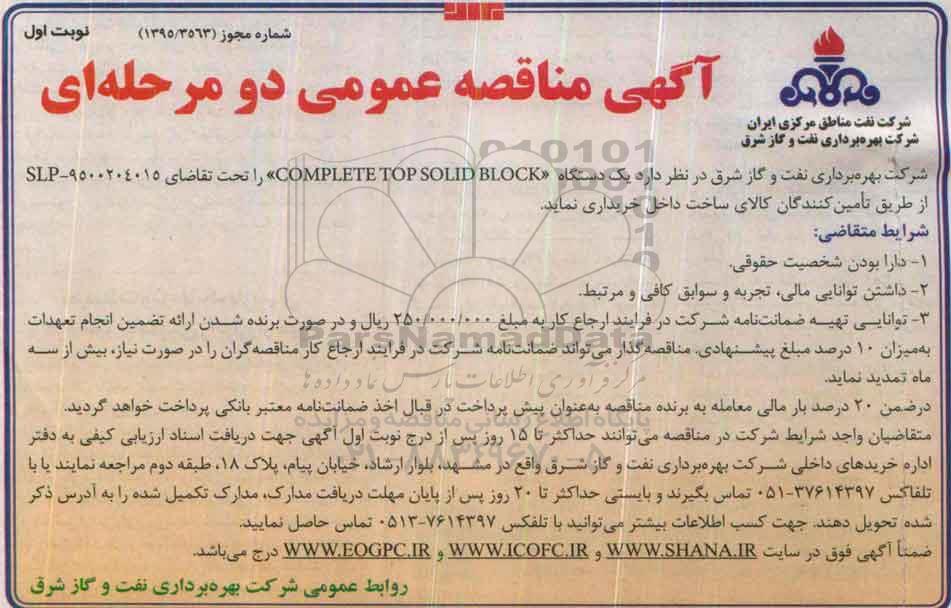 نوبت اول
شماره مجوز (۱۳۹۵/۳۵۶۳)
آگهی مناقصه عمومی دو مرحله‌ای
شرکت نفت مناطق مرکزی ایران
شرکت بهره‌برداری نفت و گاز شرق
شرکت بهره‌برداری نفت و گاز شرق در نظر دارد یک دستگاه «COMPLETE TOP SOLID BLOCK» را تحت تقاضای SLP-۹۵۰۰۲۰۴۰۱۵
از طریق تأمین‌کنندگان کالای ساخت داخل خریداری نماید.
شرایط متقاضی:
۱- دارا بودن شخصیت حقوقی.
۲- داشتن توانایی مالی، تجربه و سوابق کافی و مرتبط.
۳- توانایی تهیه ضمانت‌نامه شرکت در فرایند ارجاع کار به مبلغ ۲۵۰/۰۰۰/۰۰۰ ریال و در صورت برنده شدن ارائه تضمین انجام تعهدات
به‌میزان ۱۰ درصد مبلغ پیشنهادی. مناقصه‌گذار می‌تواند ضمانت‌نامه شرکت در فرایند ارجاع کار مناقصه‌گران را در صورت نیاز، بیش از سه
ماه تمدید نماید.
درضمن ۲۰ درصد بار مالی معامله به برنده مناقصه به‌عنوان پیش پرداخت در قبال اخذ ضمانت‌نامه معتبر بانکی پرداخت خواهد گردید.
متقاضیان واجد شرایط شرکت در مناقصه می‌توانند حداکثر تا ۱۵ روز پس از درج نوبت اول آگهی جهت دریافت اسناد ارزیابی کیفی به دفتر
اداره خریدهای داخلی شرکت بهره‌برداری نفت و گاز شرق واقع در مشهد، بلوار ارشاد، خیابان پیام، پلاک ۱۸، طبقه دوم مراجعه نمایند یا با
تلفاکس ۳۷۶۱۴۳۹۷-۰۵۱ تماس بگیرند و بایستی حداکثر تا ۲۰ روز پس از پایان مهلت دریافت مدارک، مدارک تکمیل شده را به آدرس ذکر
شده تحویل دهند. جهت کسب اطلاعات بیشتر می‌توانید با تلفکس ۷۶۱۴۳۹۷-۰۵۱۳ تماس حاصل نمایید.
ضمناً آگهی فوق در سایت WWW.SHANA.IR و WWW.ICOFC.IR و WWW.EOGPC.IR درج می‌باشد.
روابط عمومی شرکت بهره‌برداری نفت و گاز شرق
ParsNamadData
مرکز فرآوری اطلاعات پارس نماد داده ها
پایگاه اطلاع رسانی مناقصه و مزایده
۰۲۱-۸۸۳۴۹۶۷۰-۵